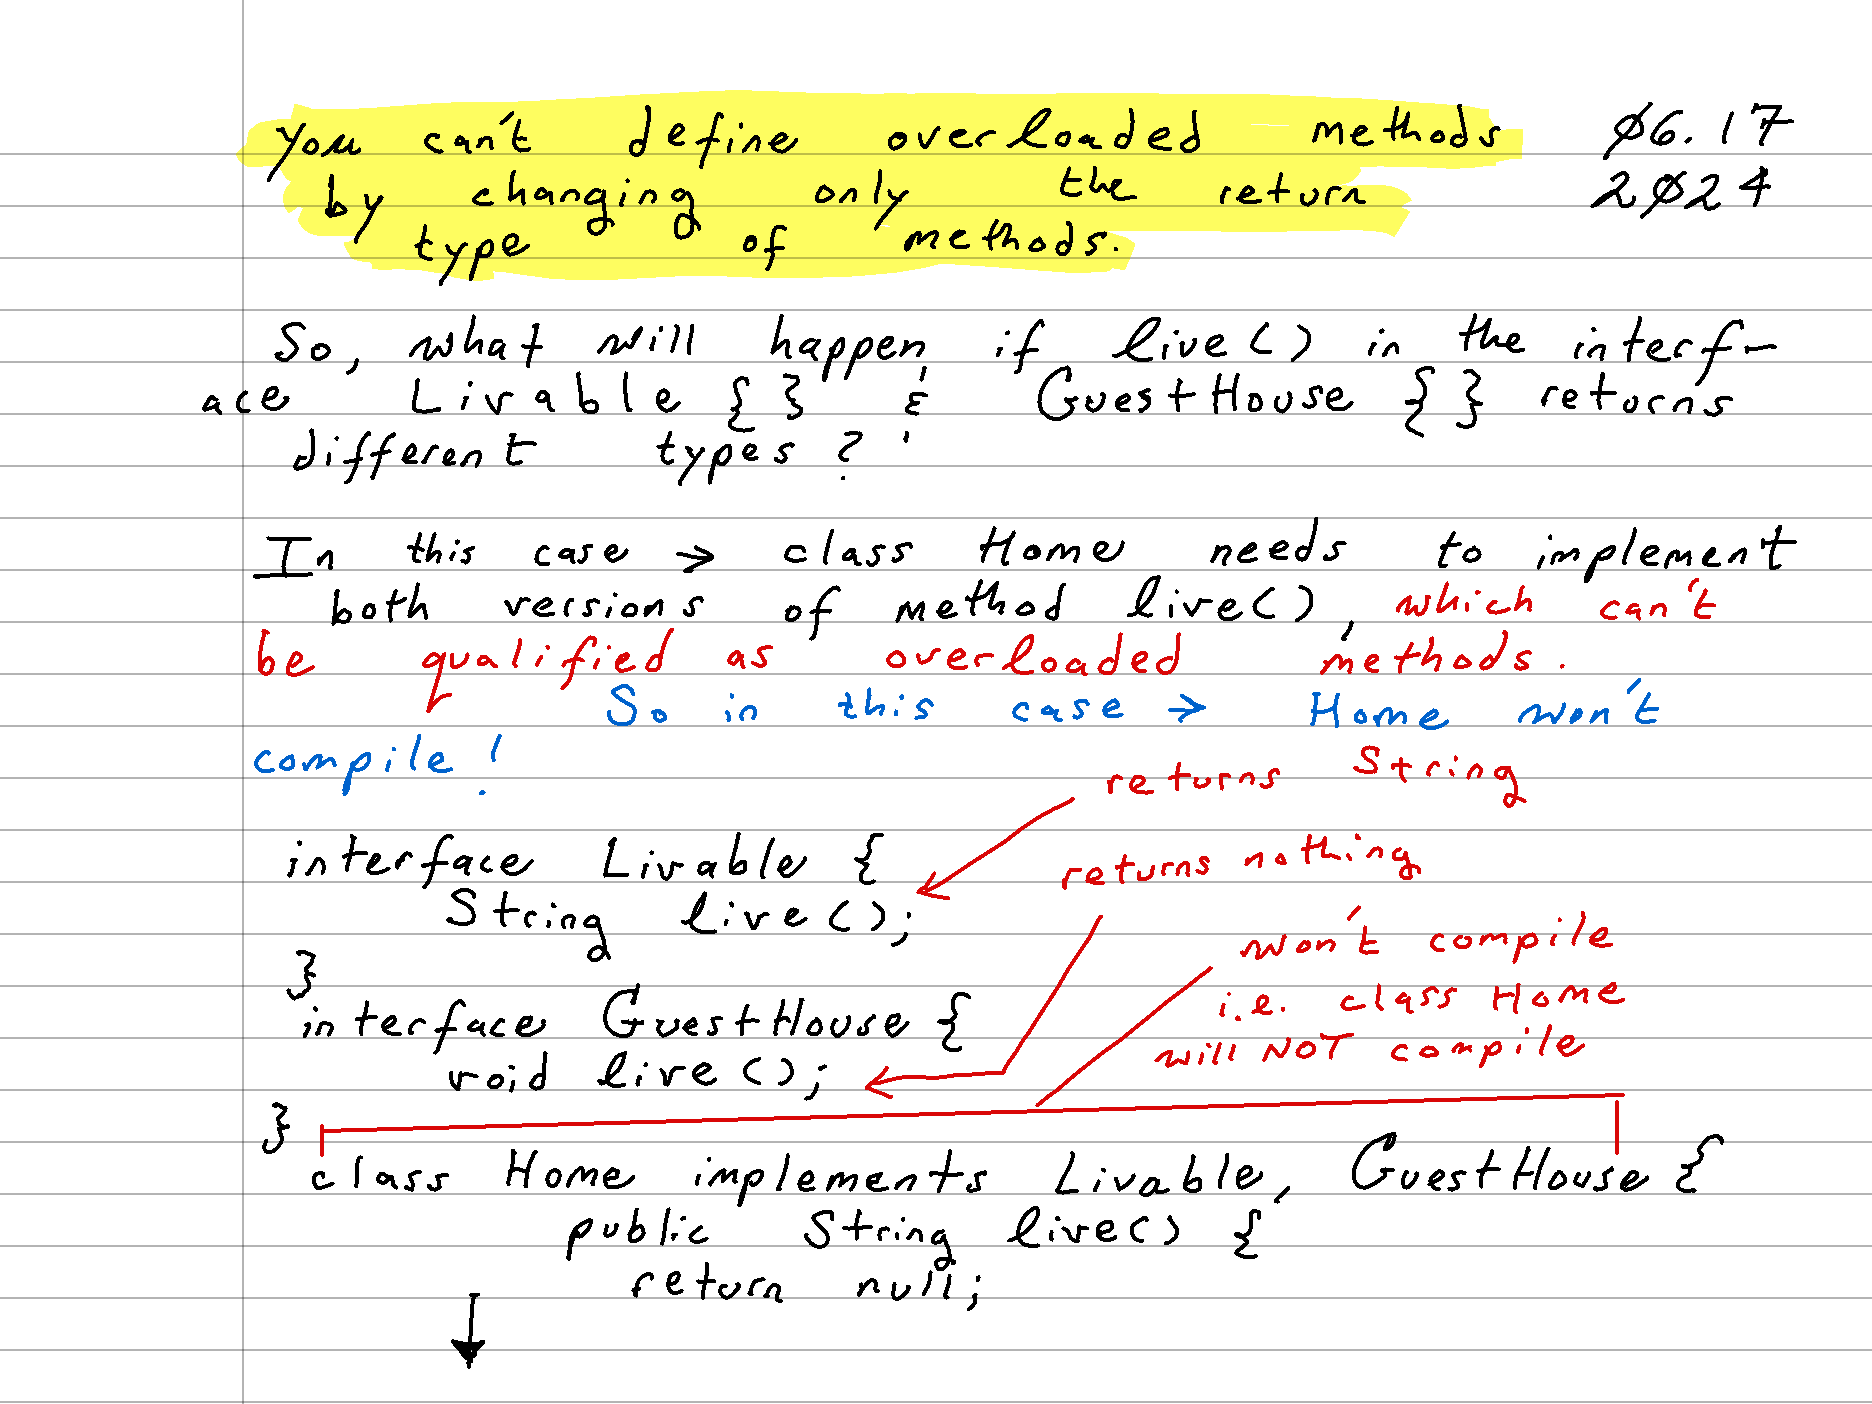 You can't define overloaded methods
by changing only the return
type of methods.
Ø6.17
2Ø24
So, what will happen if live() in the interf-
ace Livable { } & GuestHouse { } returns
different types?
In this case → class Home needs to implement
both versions of method live(), which can't
be qualified as overloaded methods.
So in this case → Home won't
compile!
returns String
interface Livable {
returns nothing
String live();
won't compile
}
i.e. class Home
interface GuestHouse {
will NOT compile
void live();
}
class Home implements Livable, GuestHouse {
public String live() {
return null;